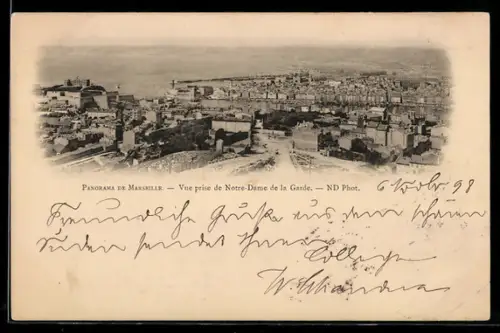 PANORAMA DE MARSEILLE. — Vue prise de Notre-Dame de la Garde. — ND Phot.
6 98
Freundliche Grüße aus dem schönen
Süden sendet Ihnen
College
W.